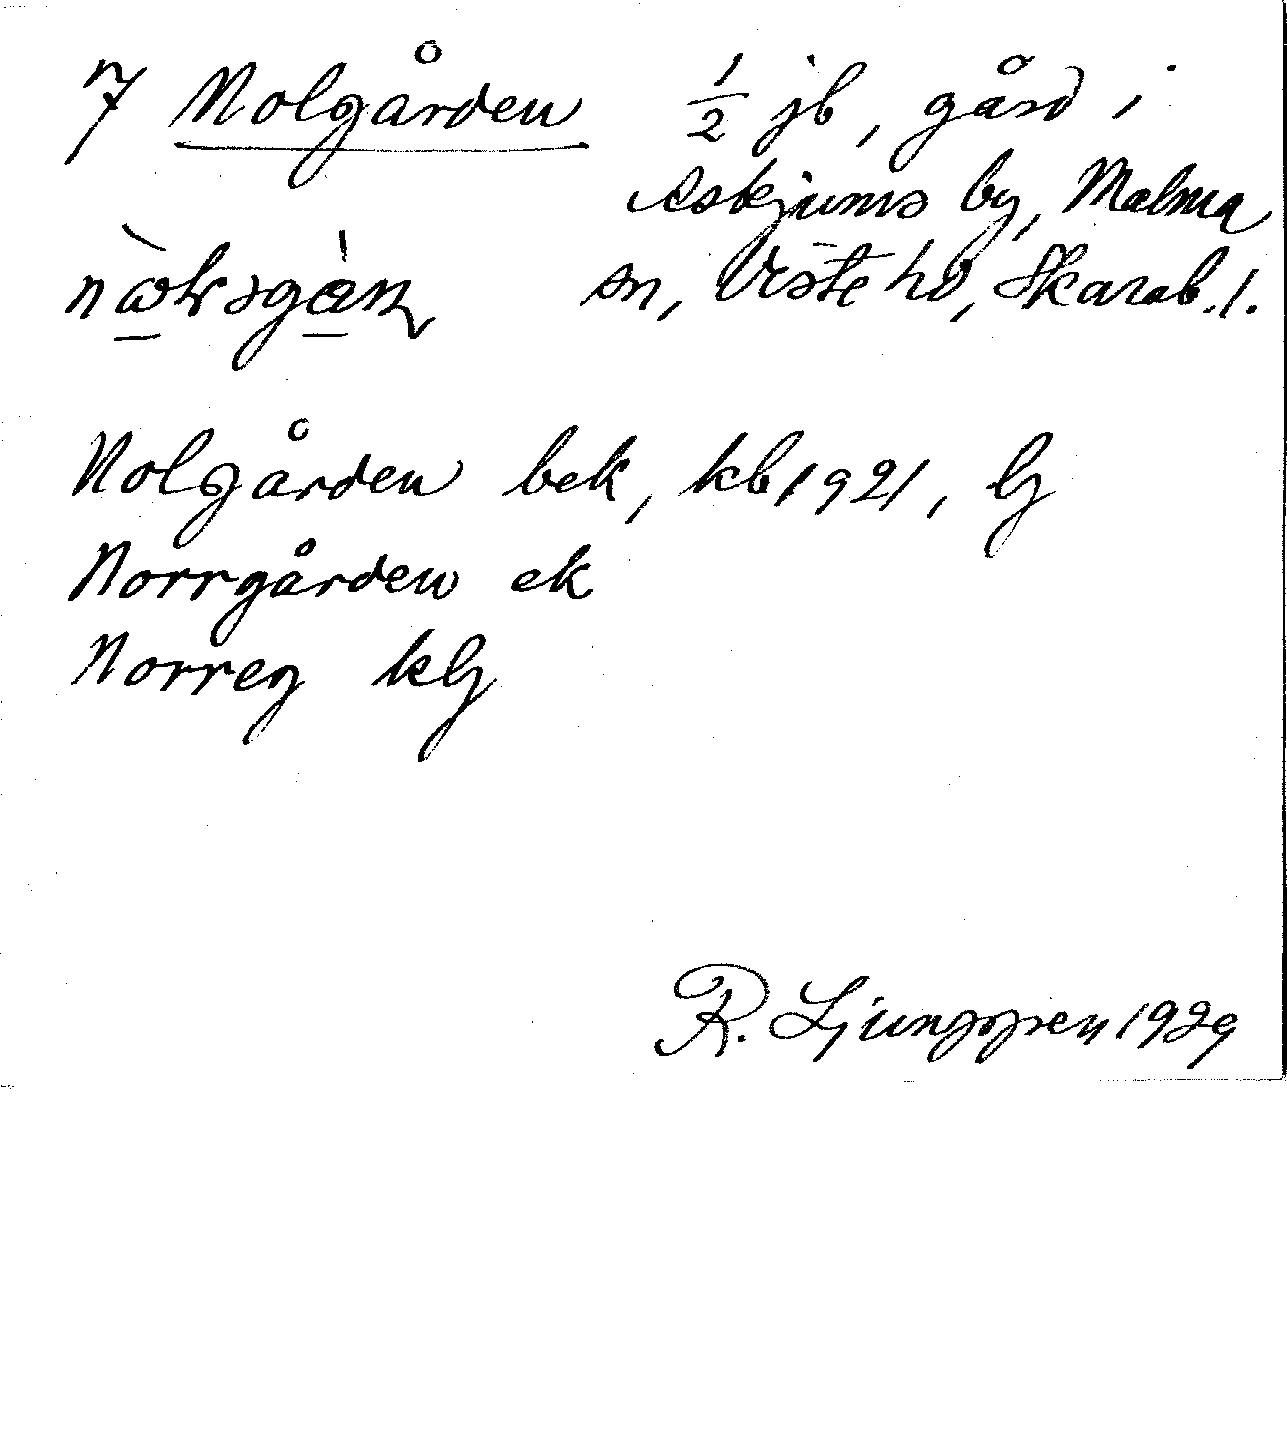 7 Nolgården 1/2 jb, gård i
Askjums by, Malma
sn, Viste hd, Skarab. l.
Nolgården bek, kb 1921, lj
Norrgården ek
Norreg klj
R. Ljunggren 1929